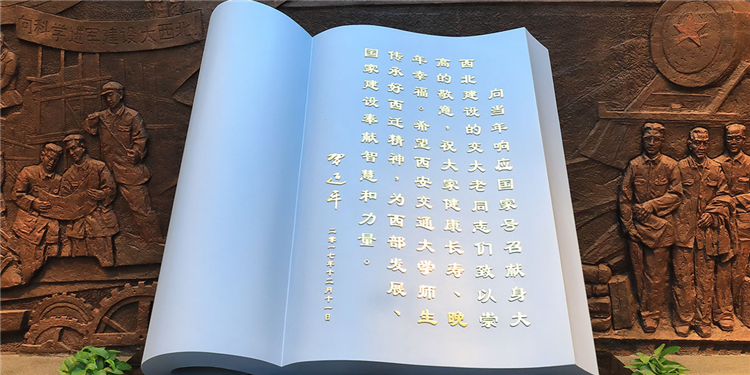 向科学進軍建設大西北
向当年响应国家号召献身大
西北建设的交大老同志们致以崇
高的敬意，祝大家健康长寿、晚
年幸福。希望西安交通大学师生
传承好西迁精神，为西部发展、
国家建设奉献智慧和力量。
习近平
二〇一七年十二月十一日